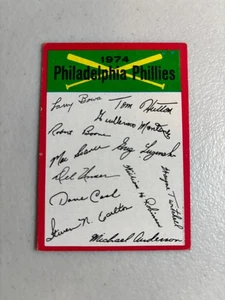 1974
Philadelphia Phillies
Larry Bowa
Tom Hutton
Guillermo Montanez
Robert Boone
Mac Scarce
Greg Luzinski
Del Unser
Wayne Twitchell
Dave Cash
Steven N. Carlton
Michael Anderson